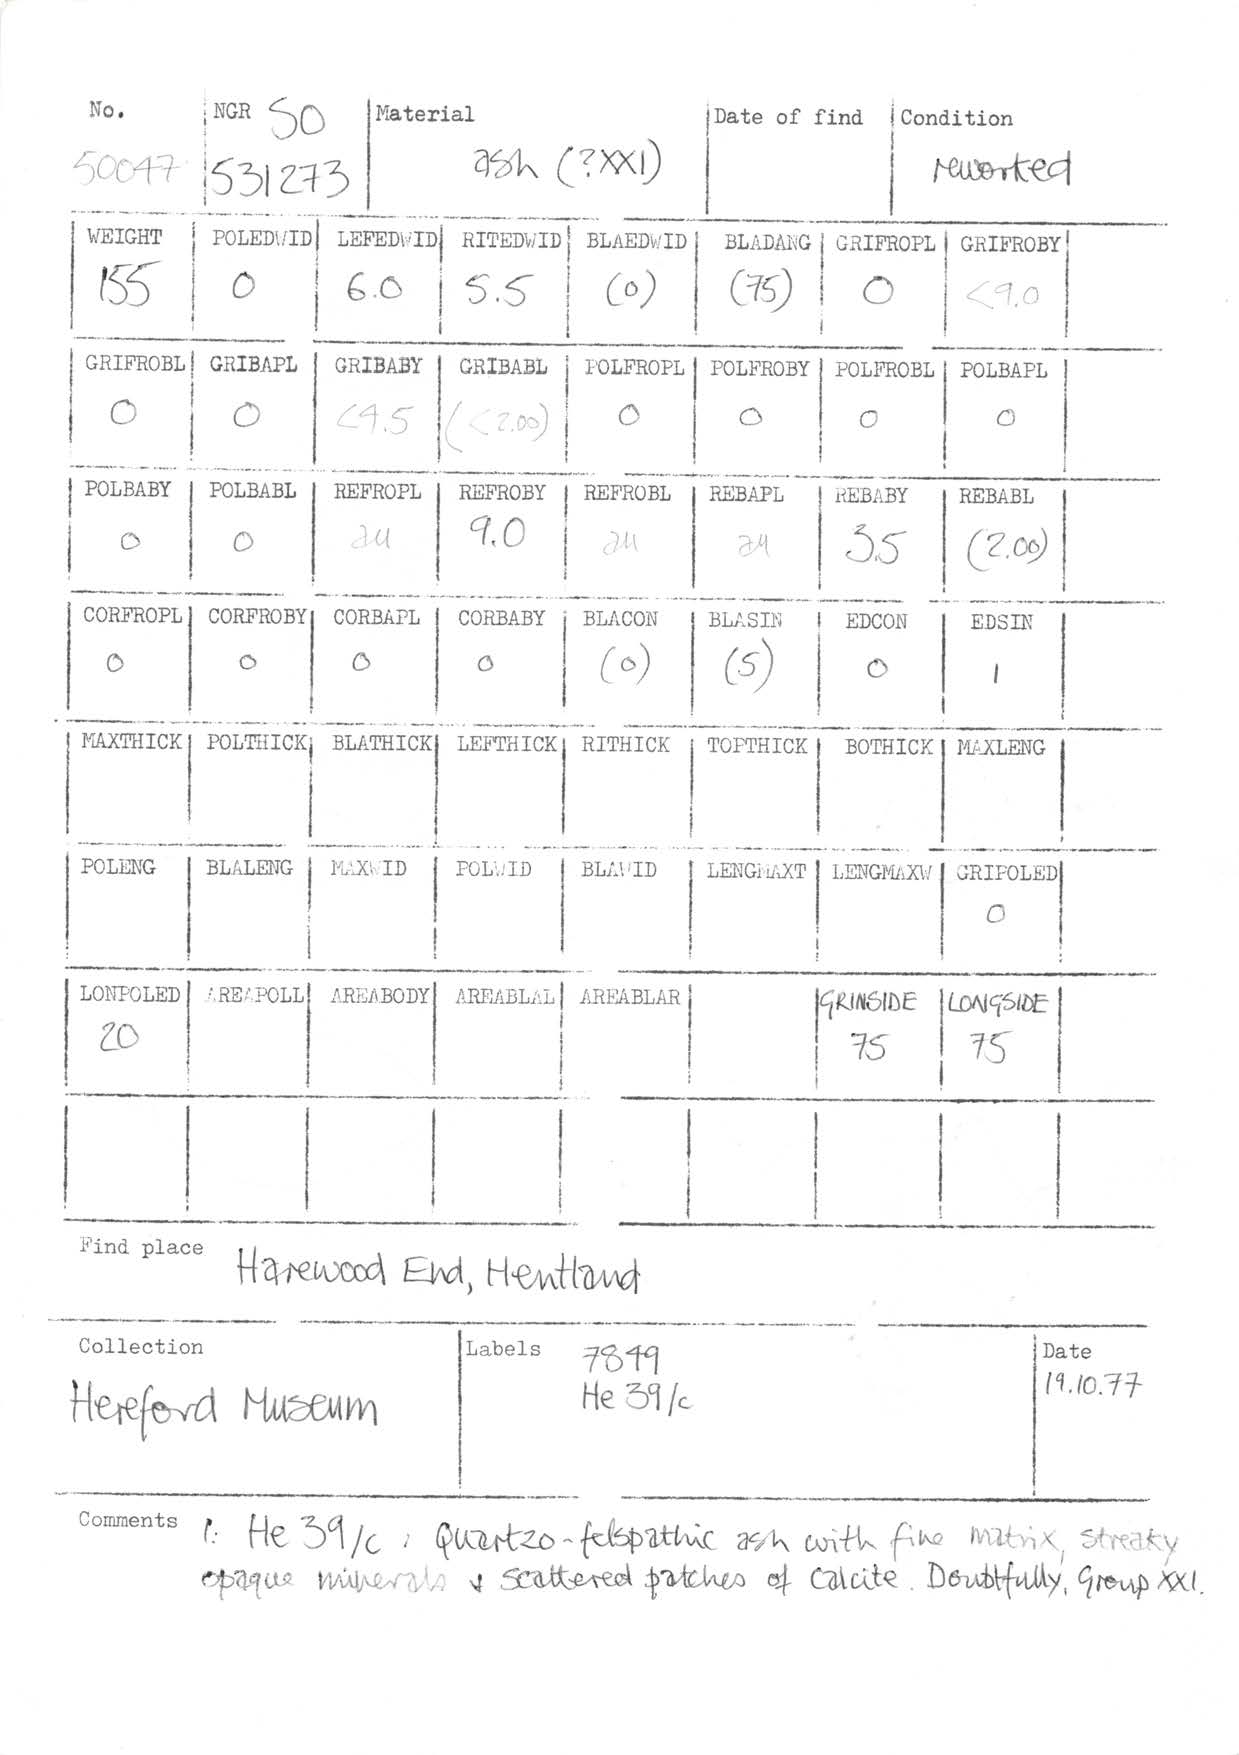 No. NGR SO Material Date of find Condition
50047 531273 ash (?XXI) reworked
WEIGHT POLEDWID LEFEDWID RITEDWID BLAEDWID BLADANG GRIFROPL GRIFROBY
155 0 6.0 5.5 (0) (75) 0 <9.0
GRIFROBL GRIBAPL GRIBABY GRIBABL POLFROPL POLFROBY POLFROBL POLBAPL
0 0 <9.5 (<2.00) 0 0 0 0
POLBABY POLBABL REFROPL REFROBY REFROBL REBAPL REBABY REBABL
0 0 au 9.0 au au 3.5 (2.00)
CORFROPL CORFROBY CORBAPL CORBABY BLACON BLASIN EDCON EDSIN
0 0 0 0 (0) (5) 0 1
MAXTHICK POLTHICK BLATHICK LEFTHICK RITHICK TOPTHICK BOTHICK MAXLENG
POLENG BLALENG MAXWID POLWID BLAWID LENGMAXT LENGMAXW GRIPOLED
0
LONPOLED AREAPOLL AREABODY AREABLAL AREABLAR GRINSIDE LONGSIDE
20 75 75
Find place Harewood End, Hentland
Collection Labels 7849 Date
Hereford Museum He 39/c 19.10.77
Comments 1. He 39/c: Quartzo-felspathic ash with fine matrix, streaky
opaque minerals & scattered patches of calcite. Doubtfully, Group XXI.